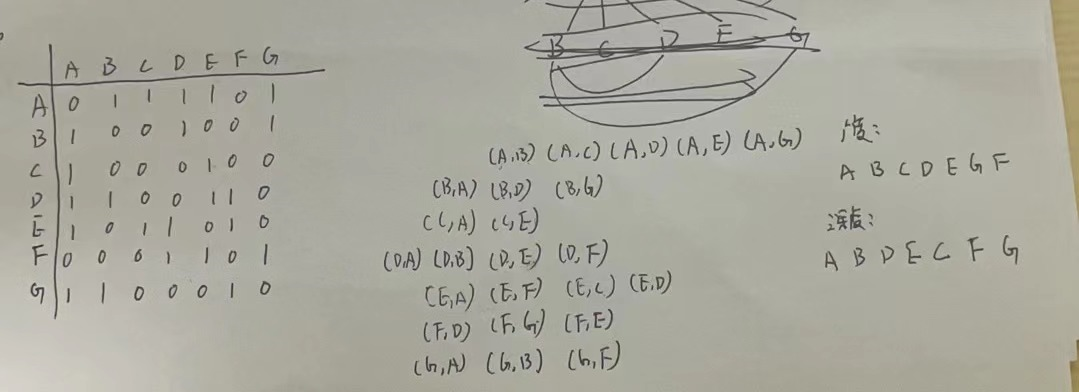 B C D E G
A B C D E F G
A 0 1 1 1 1 0 1
B 1 0 0 1 0 0 1
C 1 0 0 0 1 0 0
D 1 1 0 0 1 1 0
E 1 0 1 1 0 1 0
F 0 0 0 1 1 0 1
G 1 1 0 0 0 1 0
(A,B) (A,C) (A,D) (A,E) (A,G)
(B,A) (B,D) (B,G)
(C,A) (C,E)
(D,A) (D,B) (D,E) (D,F)
(E,A) (E,F) (E,C) (E,D)
(F,D) (F,G) (F,E)
(G,A) (G,B) (G,F)
广度:
A B C D E G F
深度:
A B D E C F G